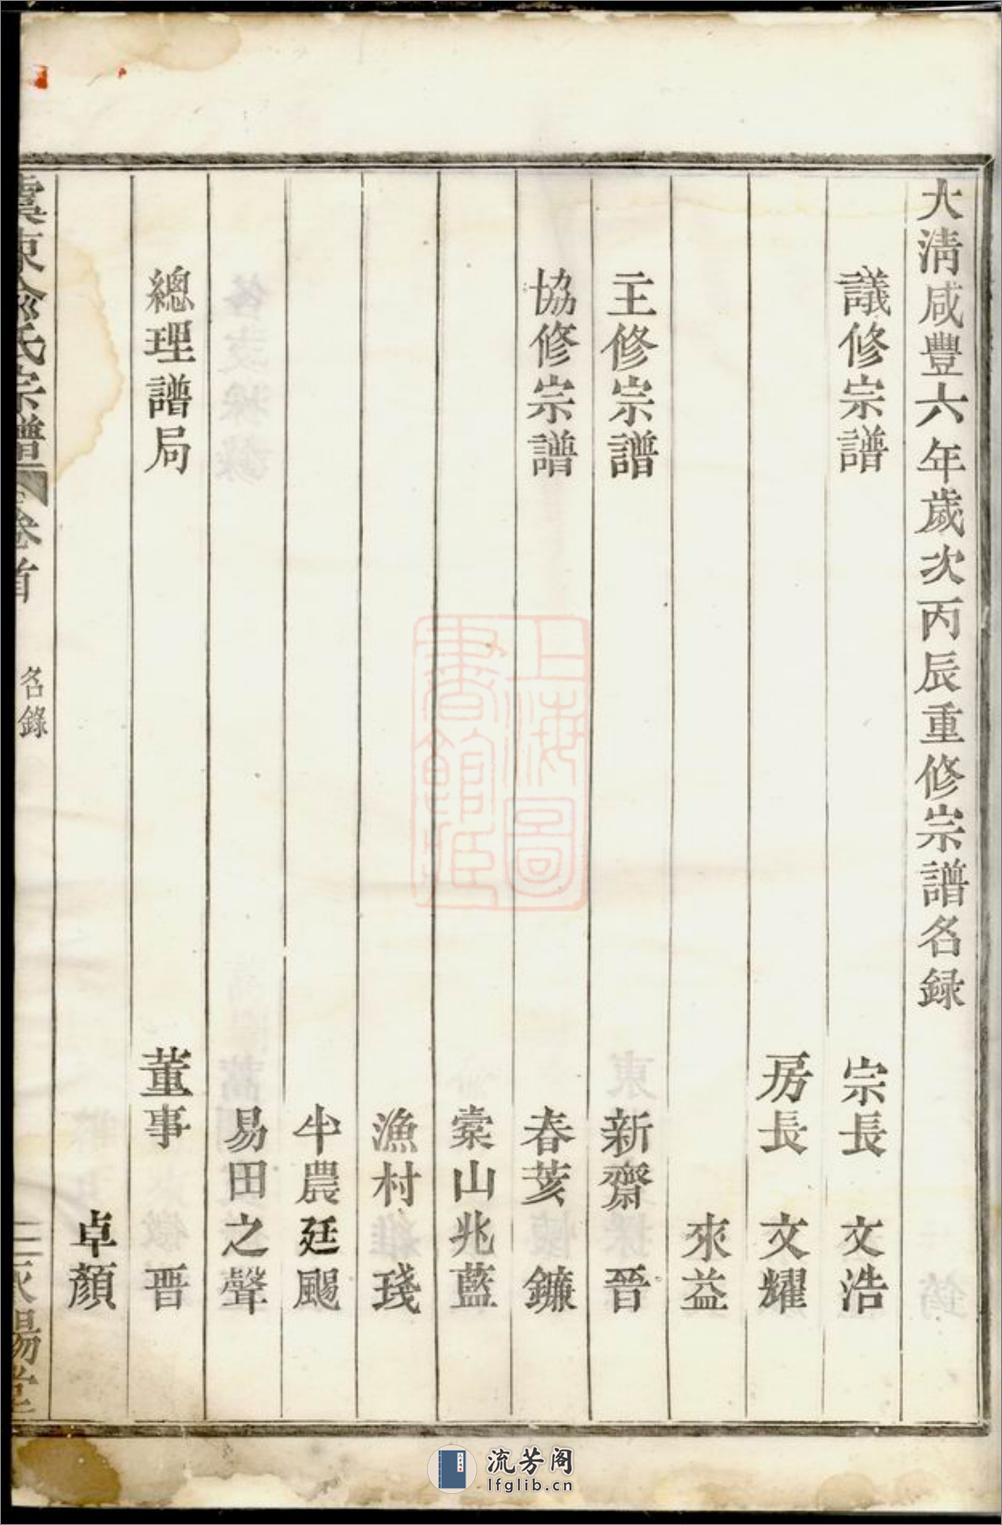 大淸咸豐六年歲次丙辰重修宗譜名録
議修宗譜 宗長 文浩
房長 文耀
來益
主修宗譜 新齋 晉
協修宗譜 春荄 鐮
棠山兆藍
漁村 琖
半農廷颺
易田之聲
總理譜局 董事 晋
卓顏
宗譜 卷首 名錄
上海圖書館藏
流芳阁
lfglib.cn